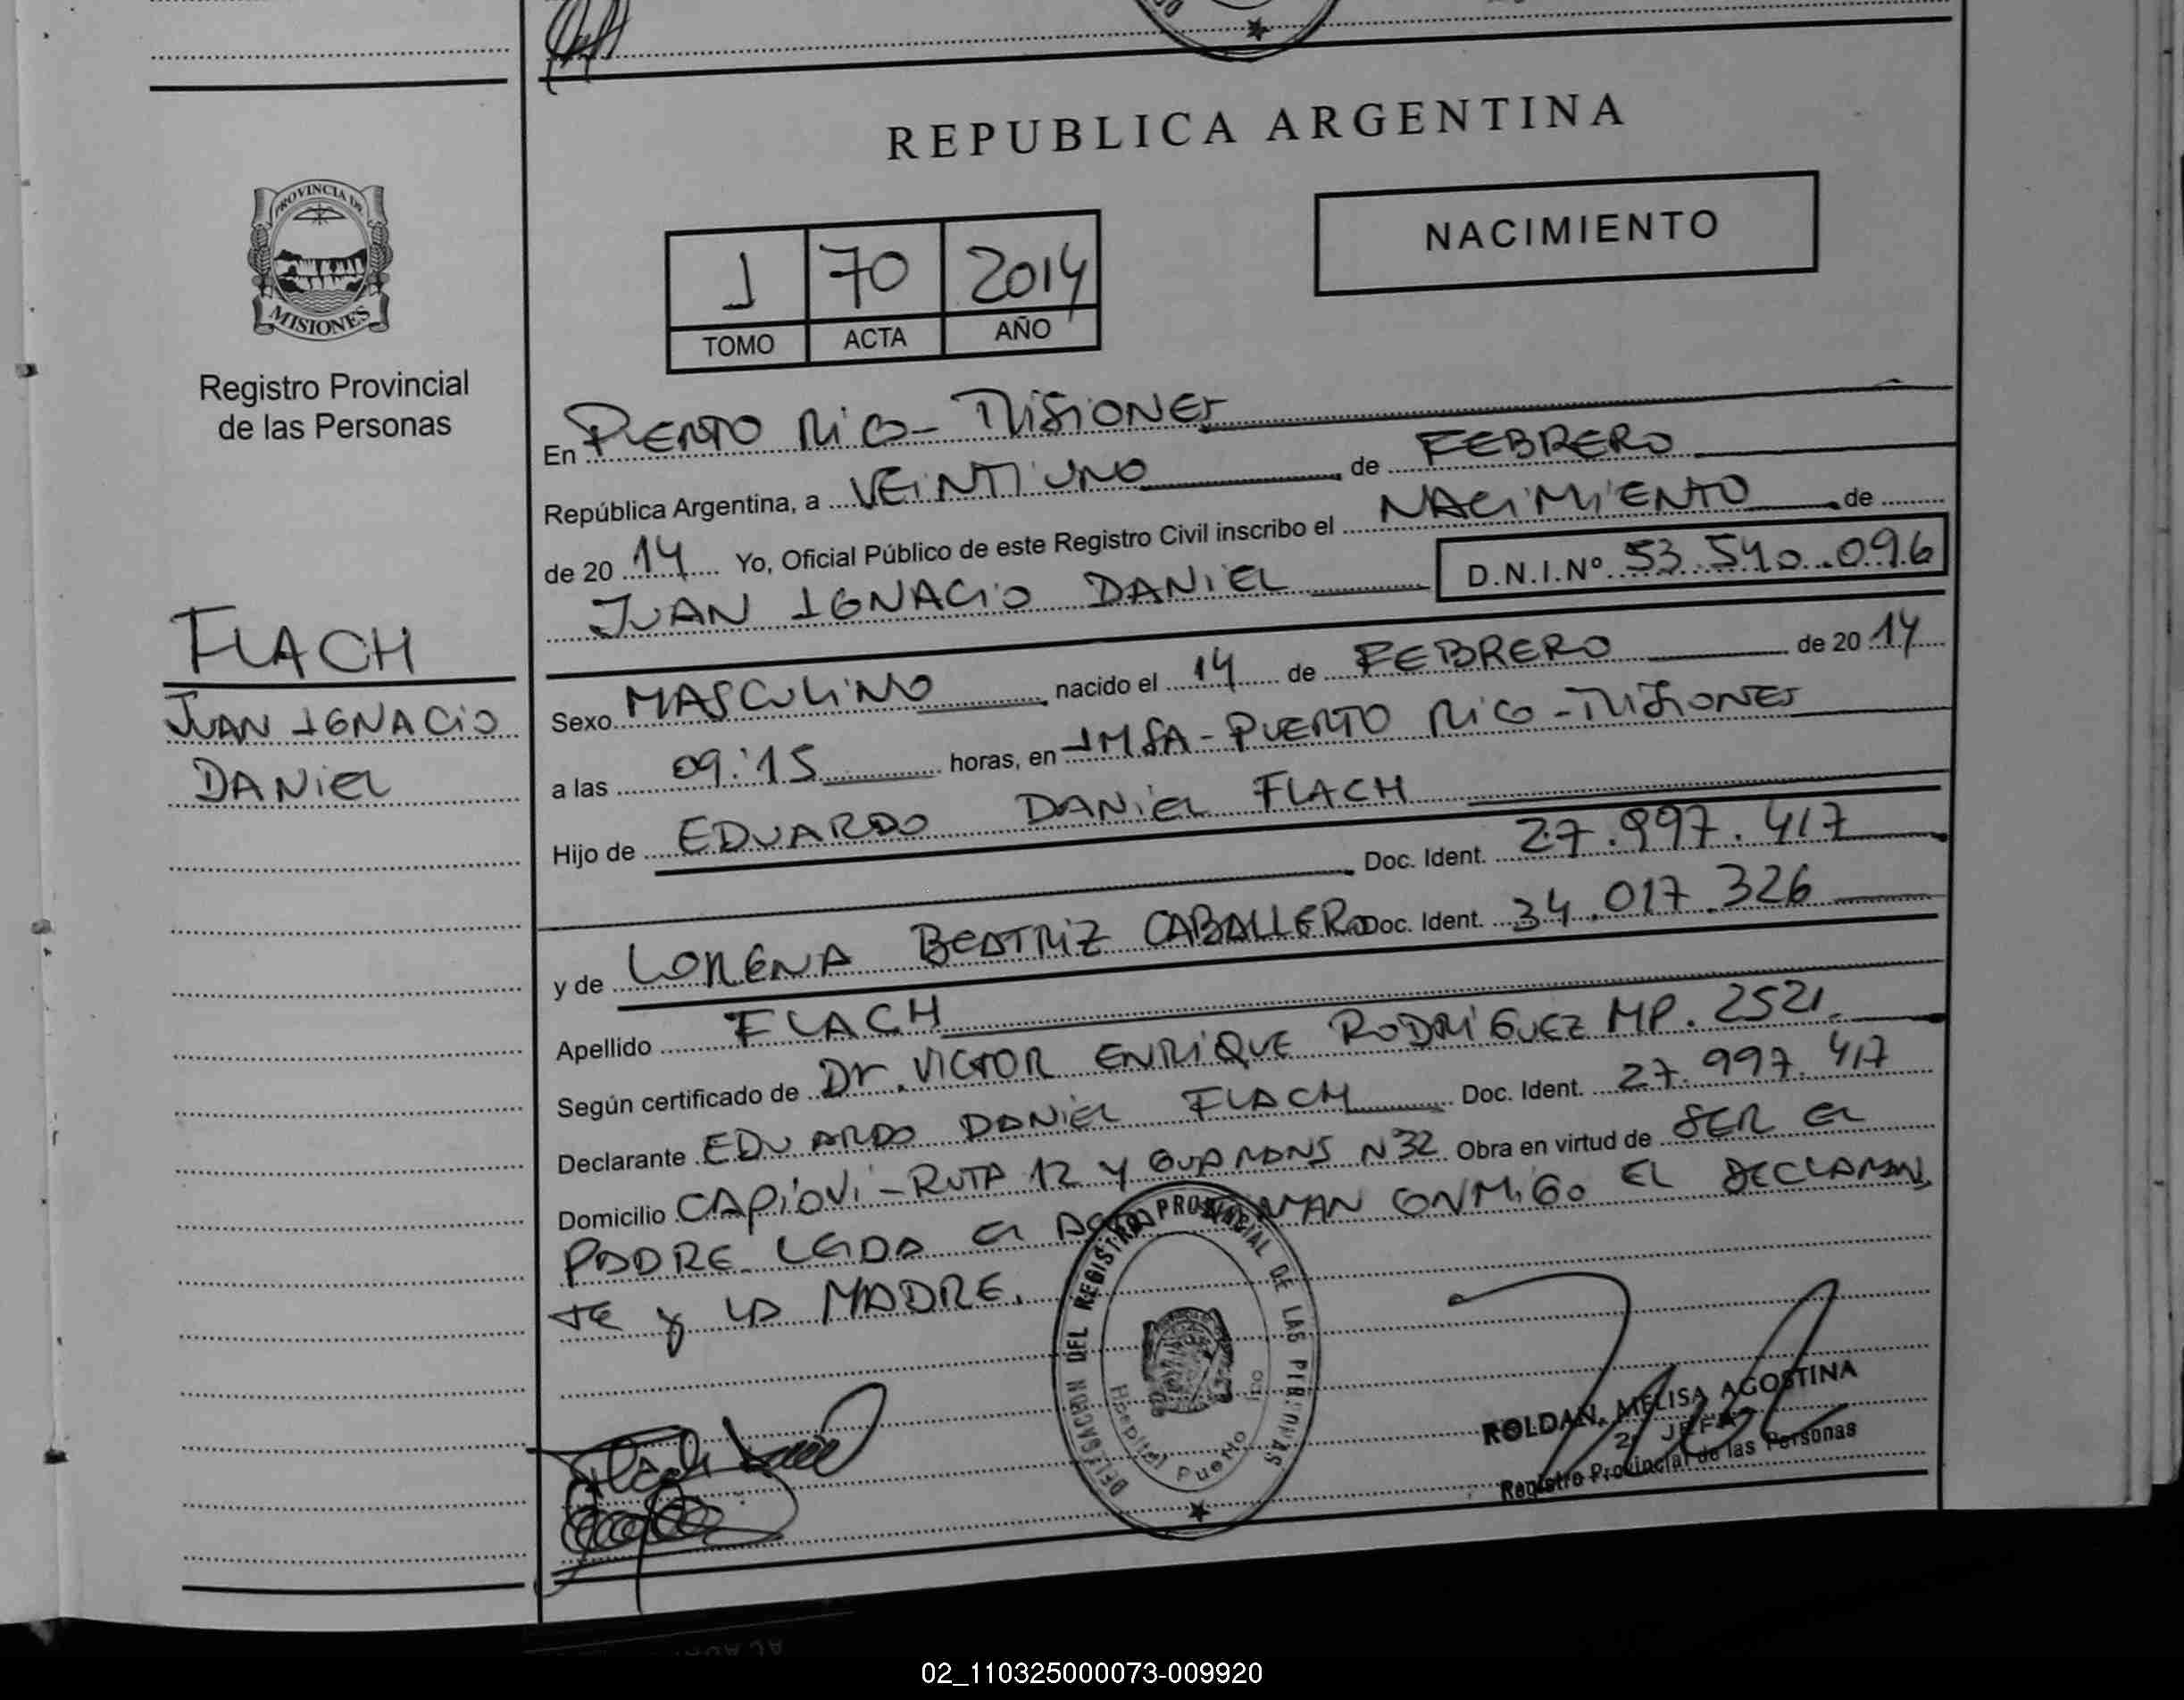 REPUBLICA ARGENTINA
PROVINCIA DE
MISIONES
Registro Provincial
de las Personas
FLACH
JUAN IGNACIO
DANIEL
1 70 2014
TOMO ACTA AÑO
NACIMIENTO
En PUERTO RICO - MISIONES
República Argentina, a VEINTIUNO de FEBRERO
de 2014 Yo, Oficial Público de este Registro Civil inscribo el NACIMIENTO de
JUAN IGNACIO DANIEL D.N.I.Nº 53.540.096
Sexo MASCULINO nacido el 14 de FEBRERO de 2014
a las 09:15 horas, en IMSA - PUERTO RICO - MISIONES
Hijo de EDUARDO DANIEL FLACH
Doc. Ident. 27.997.417
y de LORENA BEATRIZ CABALLERO Doc. Ident. 34.017.326
Apellido FLACH
Según certificado de Dr. VICTOR ENRIQUE RODRIGUEZ MP. 2521.
Declarante EDUARDO DANIEL FLACH Doc. Ident. 27.997.417
Domicilio CAPIOVI - RUTA 12 Y N 32 Obra en virtud de SER EL
PADRE LEIDA EL ACTA FIRMAN CONMIGO EL DECLARAN
TE Y LA MADRE.
DELEGACION DEL REGISTRO PROVINCIAL DE LAS PERSONAS
Hospital Puerto Rico
ROLDAN, MELISA AGOSTINA
JEFA
Registro Provincial de las Personas
02_110325000073-009920